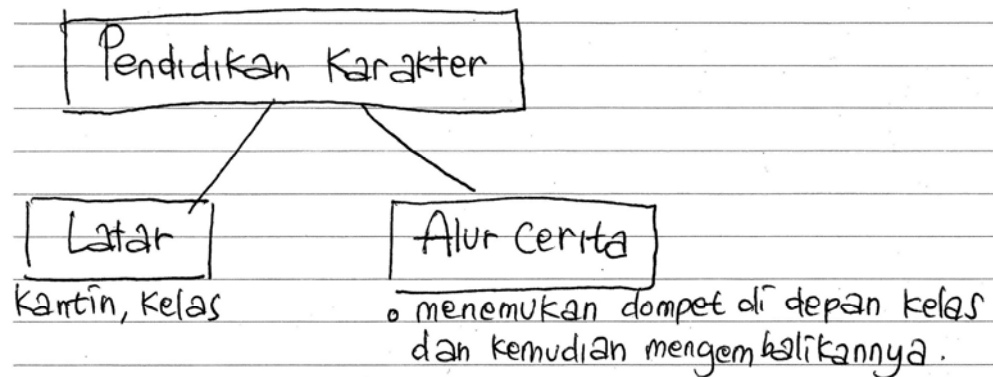 Pendidikan Karakter
Latar
Alur Cerita
Kantin, Kelas
• menemukan dompet di depan kelas
dan kemudian mengembalikannya.